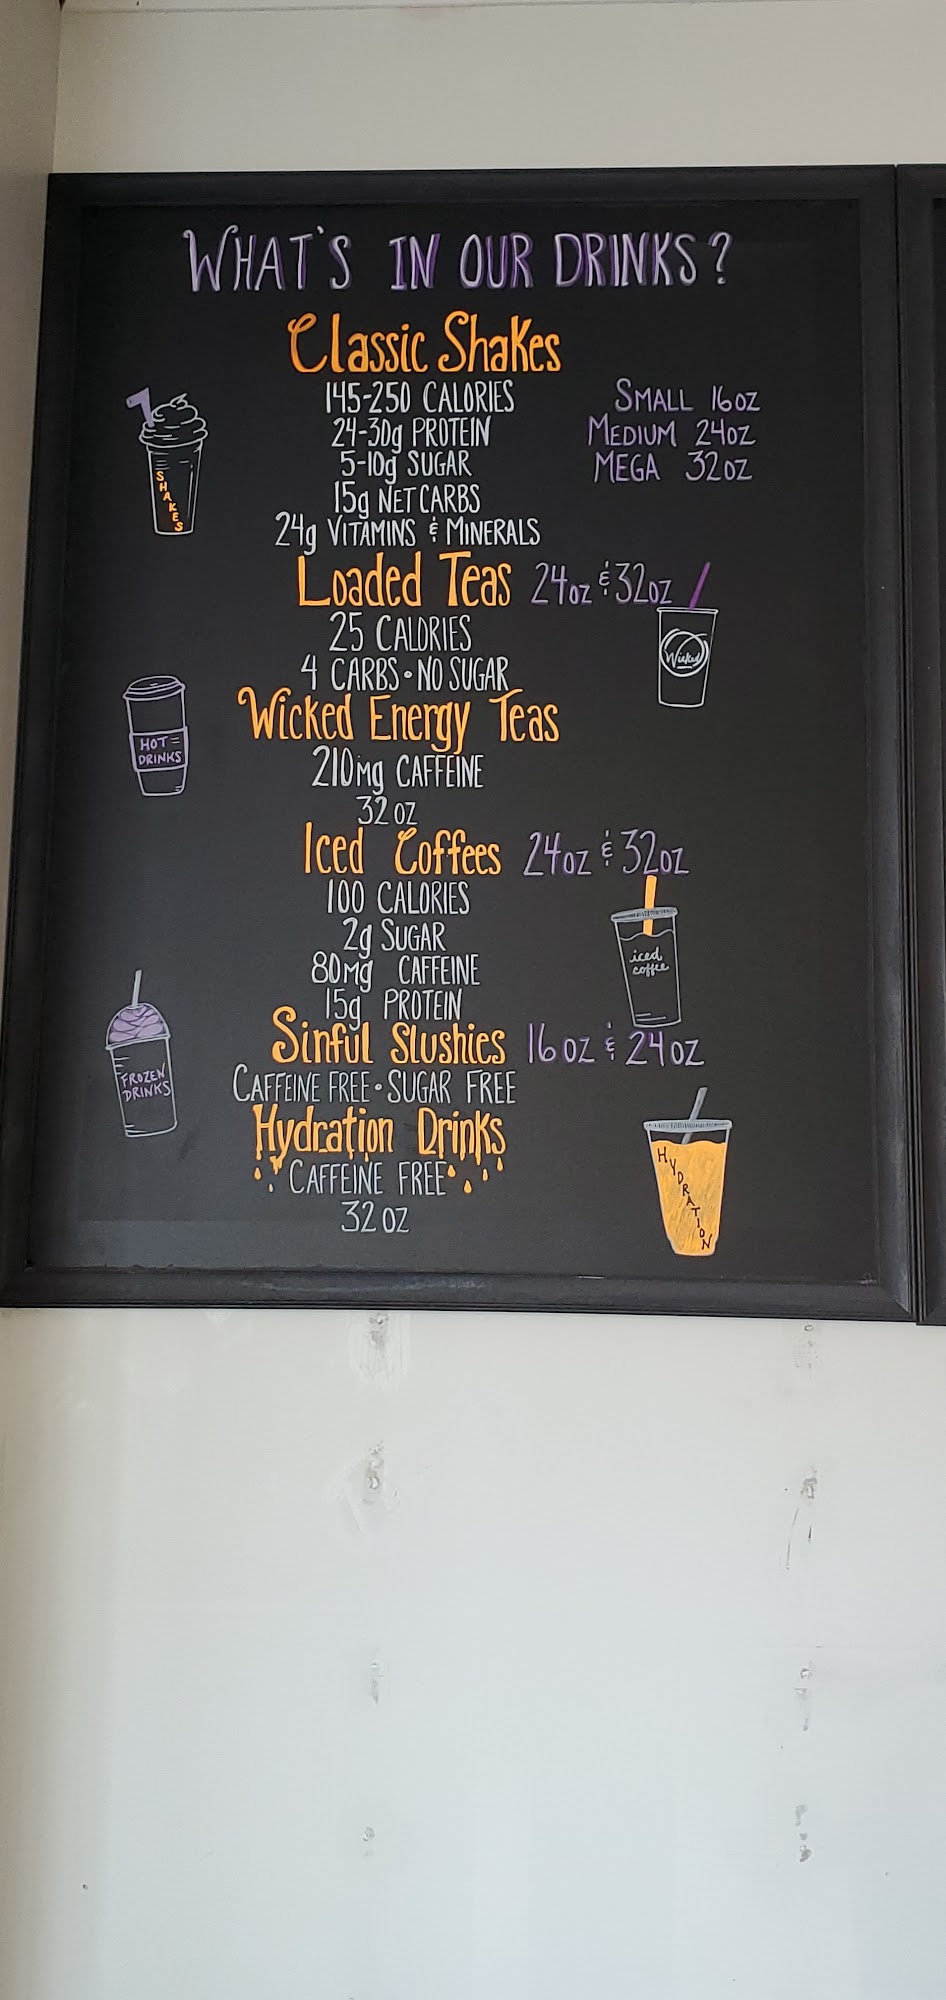 WHAT'S IN OUR DRINKS?
Classic Shakes
145-250 CALORIES
24-30g PROTEIN
5-10g SUGAR
15g NET CARBS
24g VITAMINS & MINERALS
SMALL 16oz
MEDIUM 24oz
MEGA 32oz
SHAKES
Loaded Teas 24oz & 32oz
25 CALORIES
4 CARBS • NO SUGAR
Wicked
Wicked Energy Teas
210mg CAFFEINE
32 oz
HOT
DRINKS
Iced Coffees 24oz & 32oz
100 CALORIES
2g SUGAR
80mg CAFFEINE
15g PROTEIN
iced
coffee
Sinful Slushies 16 oz & 24 oz
CAFFEINE FREE • SUGAR FREE
FROZEN
DRINKS
Hydration Drinks
CAFFEINE FREE
32 oz
HYDRATION